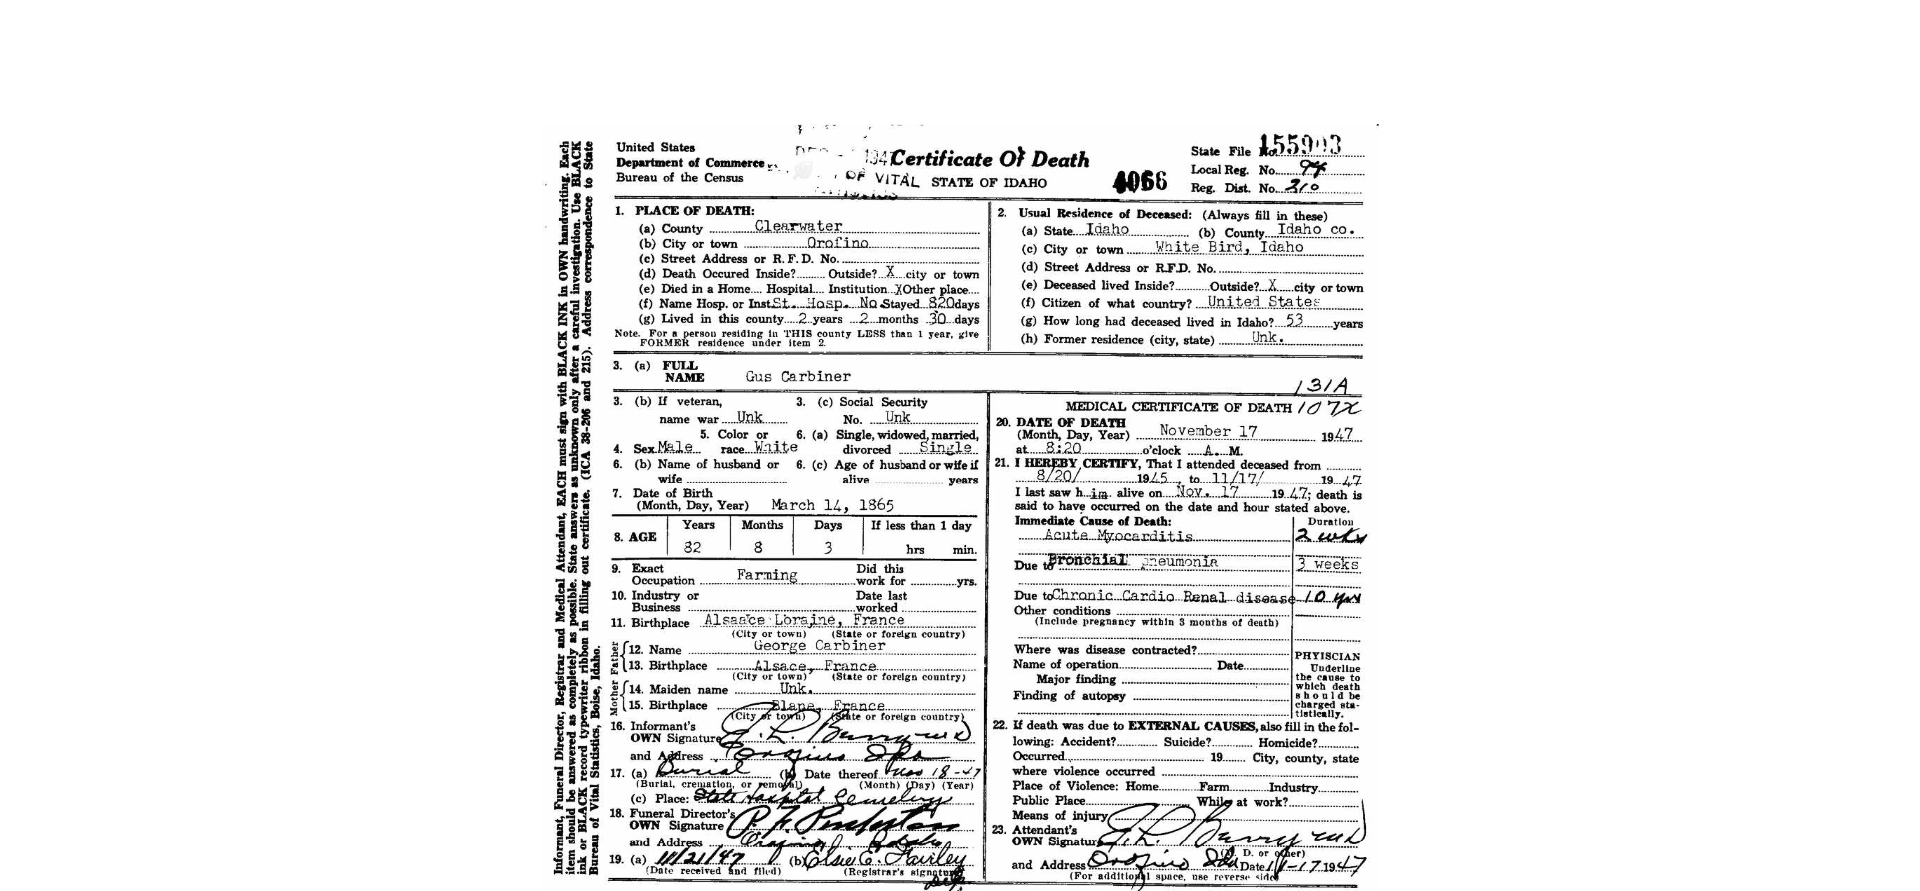 Informant, Funeral Director, Registrar and Medical Attendant, EACH must sign with BLACK INK in OWN handwriting. Each
item should be answered as completely as possible. State answers as unknown only after a careful investigation. Use BLACK
ink or BLACK record typewriter ribbon in filling out certificate. (ICA 38-206 and 215). Address correspondence to State
Bureau of Vital Statistics, Boise, Idaho.
United States
Department of Commerce
Bureau of the Census
1947
OF VITAL
Certificate Of Death
STATE OF IDAHO
4066
State File No. 155903
Local Reg. No.
Reg. Dist. No. 210
1. PLACE OF DEATH:
(a) County Clearwater
(b) City or town Orofino
(c) Street Address or R.F.D. No.
(d) Death Occured Inside? Outside? X city or town
(e) Died in a Home Hospital Institution X Other place
(f) Name Hosp. or Inst St. Hosp. No Stayed 820 days
(g) Lived in this county 2 years 2 months 30 days
Note. For a person residing in THIS county LESS than 1 year, give
FORMER residence under item 2.
2. Usual Residence of Deceased: (Always fill in these)
(a) State Idaho (b) County Idaho co.
(c) City or town White Bird, Idaho
(d) Street Address or R.F.D. No.
(e) Deceased lived Inside? Outside? X city or town
(f) Citizen of what country? United States
(g) How long had deceased lived in Idaho? 53 years
(h) Former residence (city, state) Unk.
3. (a) FULL
NAME Gus Carbiner
131A
3. (b) If veteran,
name war Unk
3. (c) Social Security
No. Unk
4. Sex Male
5. Color or
race White
6. (a) Single, widowed, married,
divorced Single
6. (b) Name of husband or
wife
6. (c) Age of husband or wife if
alive years
7. Date of Birth
(Month, Day, Year) March 14, 1865
8. AGE
Years Months Days If less than 1 day
82 8 3 hrs min.
9. Exact
Occupation Farming
Did this
work for yrs.
10. Industry or
Business
Date last
worked
11. Birthplace Alsaace Loraine, France
(City or town) (State or foreign country)
Father
12. Name George Carbiner
13. Birthplace Alsace, France
(City or town) (State or foreign country)
Mother
14. Maiden name Unk.
15. Birthplace Blane, France
(City or town) (State or foreign country)
16. Informant's
OWN Signature
and Address Orofino Ida
17. (a) Burial (b) Date thereof Nov 18-47
(Burial, cremation, or removal) (Month) (Day) (Year)
(c) Place: State Hospital Cemetery
18. Funeral Director's
OWN Signature
and Address Orofino Idaho
19. (a) 11/21/47 (b) Elsie C. Fairley
(Date received and filed) (Registrar's signature)
MEDICAL CERTIFICATE OF DEATH 107X
20. DATE OF DEATH
(Month, Day, Year) November 17 1947
at 8:20 o'clock A. M.
21. I HEREBY CERTIFY, That I attended deceased from
8/20/ 1945, to 11/17/ 1947
I last saw him alive on Nov. 17 1947; death is
said to have occurred on the date and hour stated above.
Immediate Cause of Death: Duration
Acute Myocarditis 2 wks
Due to Bronchial pneumonia 3 weeks
Due to Chronic Cardio Renal disease 10 yrs
Other conditions
(Include pregnancy within 3 months of death)
Where was disease contracted?
Name of operation Date
Major finding
Finding of autopsy
PHYISCIAN
Underline
the cause to
which death
should be
charged sta-
tistically.
22. If death was due to EXTERNAL CAUSES, also fill in the fol-
lowing: Accident? Suicide? Homicide?
Occurred 19 City, county, state
where violence occurred
Place of Violence: Home Farm Industry
Public Place While at work?
Means of injury
23. Attendant's
OWN Signature
(M. D. or other)
and Address Orofino Ida Date 11-17 1947
(For additional space, use reverse side)